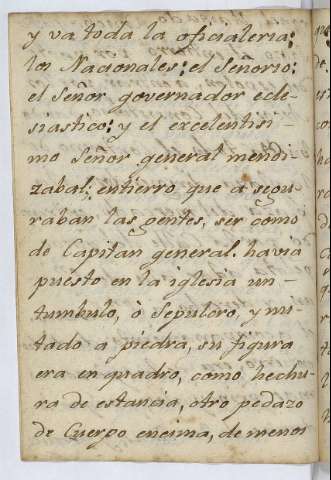 y va toda la oficialeria;
los Nacionales; el Señorio;
el Señor governador ecle-
siastico; y el excelentisi
mo Señor general mendi
zabal; entierro que a segu-
raban las gentes, ser como
de Capitan general. havia
puesto en la iglesia un-
tumbulo, ò Sepulcro, y mi-
tado a piedra, su figura
era en quadro, como hechu-
ra de estancia, otro pedazo
de Cuerpo encima, de menos